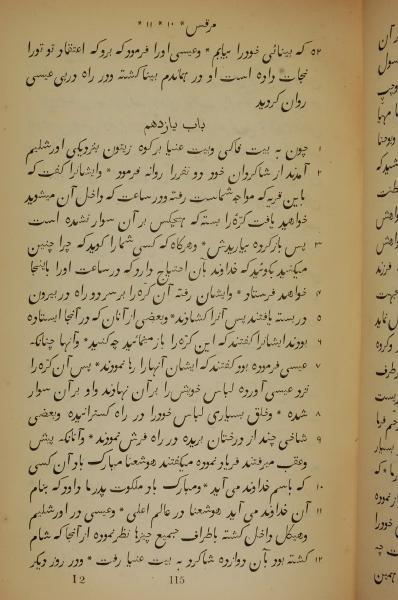 مرقس * ۱۰ * ۱۱ *
۵۲ که بینائی خودرا بیابم * وعیسی اورا فرمود که برو که اعتقاد تو تورا
نجات داده است او در هماندم بینا کشته ودر راه در پی عیسی
روان کردید
باب یازدهم
۱ چون به بیت فاکی وبیت عنیا بر کوه زیتون بنزدیکی اورشلیم
۲ آمدند از شاکردان خود دو نفررا روانه فرمود * وایشانرا کفت که
باین قریه که مواجه شماست رفته ودر ساعت که داخل آن میشوید
خواهید یافت کرّه‌را بسته که هیچکس بر آن سوار نشده است
۳ پس باز کرده بیاریدش * وهرکاه که کسی شمارا کوید که چرا چنین
میکنید بکوئید که خداوند بآن احتیاج دارد که در ساعت اورا باینجا
۴ خواهد فرستاد * وایشان رفته آن کرّه‌را بر سر دو راه در بیرون
۵ در بسته یافتند پس آنرا کشادند * وبعضی از آنان که در آنجا ایستاده
۶ بودند ایشانرا کفتند که این کرّه‌را باز مینمائید چه میکنید * وآنها چنانکه
۷ عیسی فرموده بود کفتند که ایشان آنهارا رها نمودند * پس آن کرّه‌را
نزد عیسی آورده لباس خویش‌را بر آن نهادند واو بر آن سوار
۸ شده * وخلق بسیاری لباس خودرا در راه کسترانیده وبعضی
۹ شاخی چند از درختان بریده در راه فرش نمودند * وآنانکه پیش
وعقب میرفتند فریاد نموده میکفتند هوشعنا مبارک باد آن کسی
۱۰ که باسم خداوند می آید * ومبارک باد ملکوت پدر ما داود که بنام
۱۱ آن خداوند می آید هوشعنا در عالم اعلی * وعیسی در اورشلیم
وهیکل داخل کشته باطراف جمیع چیزها نظر نموده از آنجا که شام
۱۲ کشته بود بآن دوازده شاکرد به بیت عنیا رفت * ودر روز دیکر
I 2 115